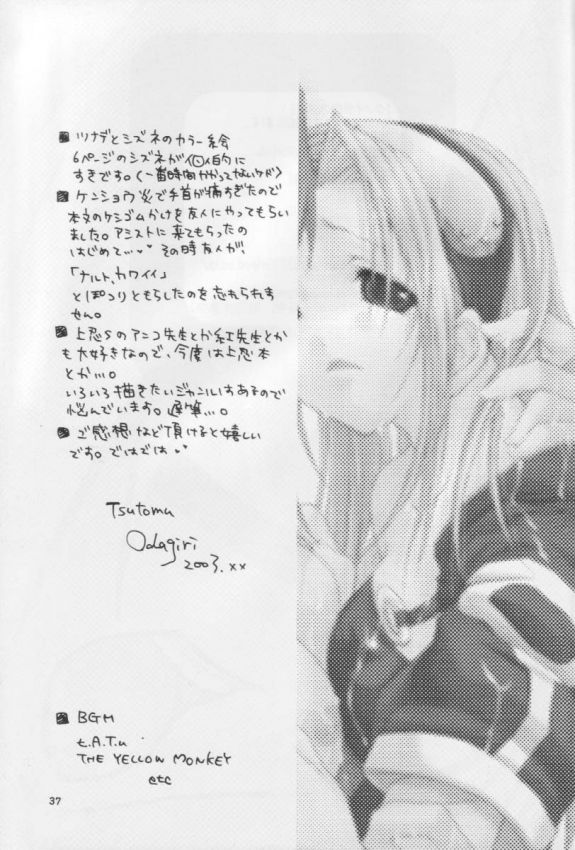 ツナデとシズネのカラー絵
6ページのシズネが個人的に
すきです。(一番時間かかってないケド)
ケンショウ炎で手首が痛すぎたので
本文のケシゴムかけを友人にやってもらい
ました。アシストに来てもらったの
はじめて… その時友人が、
「ナルト、カワイイ」
とぽつりともらしたのを忘れられま
せん。
上忍Sのアンコ先生とか紅先生とか
も大好きなので、今度は上忍本
とか…。
いろいろ描きたいジャンルはあるので
悩んでいます。遅筆…。
ご感想など頂けると嬉しい
です。ではでは
Tsutomu
Odagiri
2003.xx
BGM
t.A.T.u
THE YELLOW MONKEY
etc
37